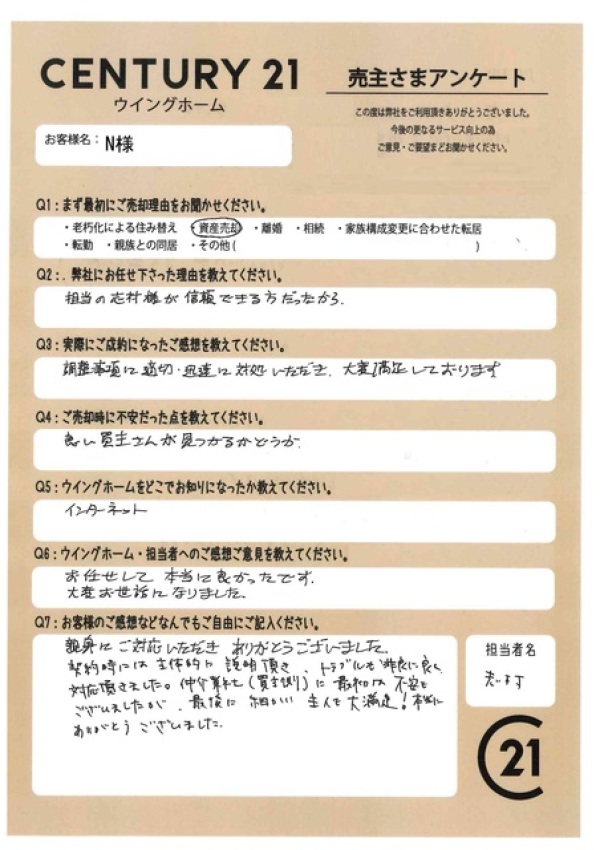 CENTURY 21
ウイングホーム
売主さまアンケート
この度は弊社をご利用頂きありがとうございました。
今後の更なるサービス向上の為
ご意見・ご要望までお聞かせください。
お客様名： N様
Q1：まず最初にご売却理由をお聞かせください。
・老朽化による住み替え ・資産売却 ・離婚 ・相続 ・家族構成変更に合わせた転居
・転勤 ・親族との同居 ・その他( )
Q2：. 弊社にお任せ下さった理由を教えてください。
担当の志村様が信頼できる方だったから.
Q3：実際にご成約になったご感想を教えてください。
調整事項に適切・迅速に対処いただき、大変満足しております
Q4：ご売却時に不安だった点を教えてください。
良い買主さんが見つかるかどうか.
Q5：ウイングホームをどこでお知りになったか教えてください。
インターネット
Q6：ウイングホーム・担当者へのご感想ご意見を教えてください。
お任せして 本当に良かったです.
大変お世話になりました.
Q7：お客様のご感想などなんでもご自由にご記入ください。
親身にご対応いただき ありがとうございました.
契約時には主体的に 説明頂き、トラブルも 非常に良く
対応頂きました。仲介業社（買主側）に 最初は 不安も
ございましたが、最後に 主人も大満足！本当に
ありがとう ございました.
担当者名
志村
C21